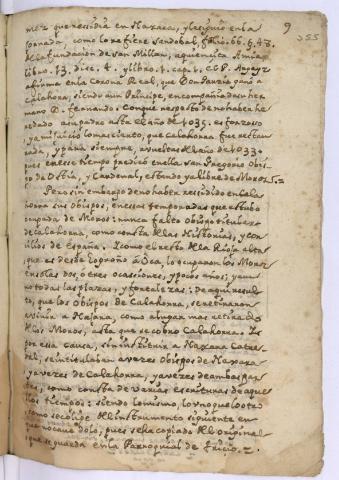 9
255
mez que ressidia en Naxara, y lesiguio en la
Jornada, como lo refiere Sandobal, folio. 66. §. 43.
de la fundacion de san Millan, aquien cita
libro. 13. disc. 4. y libro. 1. cap. 1.
afirma en la Corona Real, que Don Garzia gano a
Calahorra, siendo aun Principe, en compañia de su her
mano D. fernando: Conque respeto de no haber he
redado asu padre asta el año de 1035. es forzoso
que Calahorra fue restau
rada, y para siempre, a bueltas del año de 1033.
pues en este tiempo predicó en ella san Gregorio Obis-
po de Ostia, y Cardenal, estando ya libre de Moros.
Pero sin embargo de no haber ressidido en Cala
horra sus Obispos, en essas temporadas que estubo
ocupada de Moros: nunca falto Obispo titular
de Calahorra, como consta de las Historias, y Con
cilios de España. Y como el resto de la Rioja alta
que es desde Logroño à Oca, lo ocuparon los Moros
en solas dos, o tres ocassiones, y pocos años; y aun
no todas las plazas, y fortalezas: de aqui resul
to, que los Obispos de Calahorra, se retiraron
a viuir a Naxara, como a lugar mas retirado
de los Moros, asta que se cobro Calahorra. Y
por esa causa, sin instituir a Naxara Cate-
dral, se intitulaban a vezes Obispos de Naxara
y a vezes de Calahorra, y a vezes de ambas par
tes, como consta de varias escrituras de aque
llos tiempos: siendo lo mismo, lo vno que lo otro
como se colige del instrumento siguiente en
que no cave dolo, pues se ha copiado del original
que se guarda en la Parroquial de